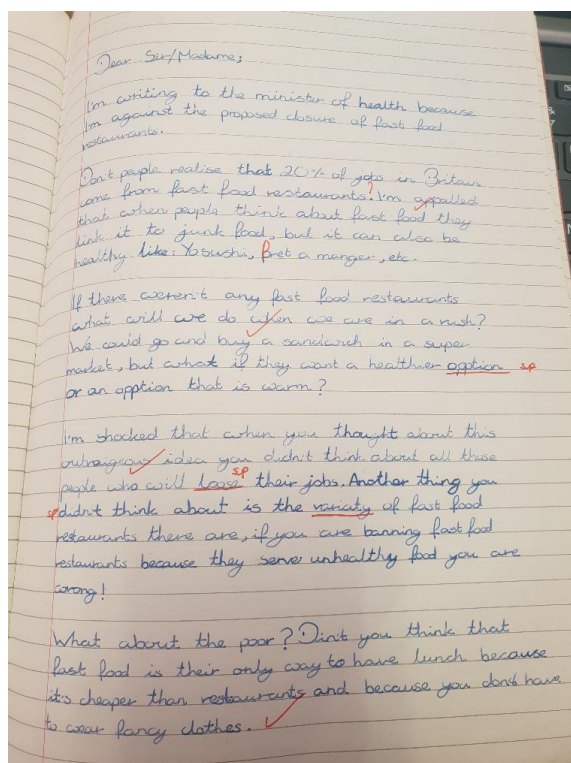 Dear Sir/Madame;
I'm writing to the minister of health because
I'm against the proposed closure of fast food
restaurants.
Don't people realise that 20% of jobs in Britain
come from fast food restaurants? I'm appalled
that when people think about fast food they
link it to junk food, but it can also be
healthy like: Yo sushi, Pret a manger, etc.
If there weren't any fast food restaurants
what will we do when we are in a rush?
We could go and buy a sandwich in a super
market, but what if they want a healthier opption sp
or an opption that is warm?
I'm shocked that when you thought about this
outrageous idea you didn't think about all those
sp
people who will loose their jobs. Another thing you
sp didn't think about is the variaty of fast food
restaurants there are, if you are banning fast food
restaurants because they serve unhealthy food you are
wrong!
What about the poor? Din't you think that
fast food is their only way to have lunch because
it's cheaper than restaurants and because you don't have
to wear fancy clothes.